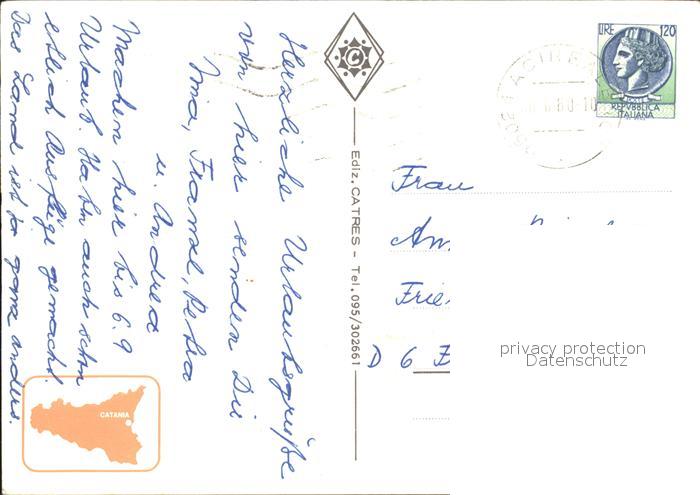 Herzliche Urlaubsgrüße
von hier senden Dir
Irma, Franzl, Petra
u. Andrea
Machen hier bis 6.9
Urlaub. Habn auch schon
etlich Ausflüge gemacht.
Das Land ist ja ganz anders.
CATANIA
Ediz. CATRES - Tel. 095/302661
C
LIRE 120
REPVBBLICA
ITALIANA
Frau
D 6
privacy protection
Datenschutz